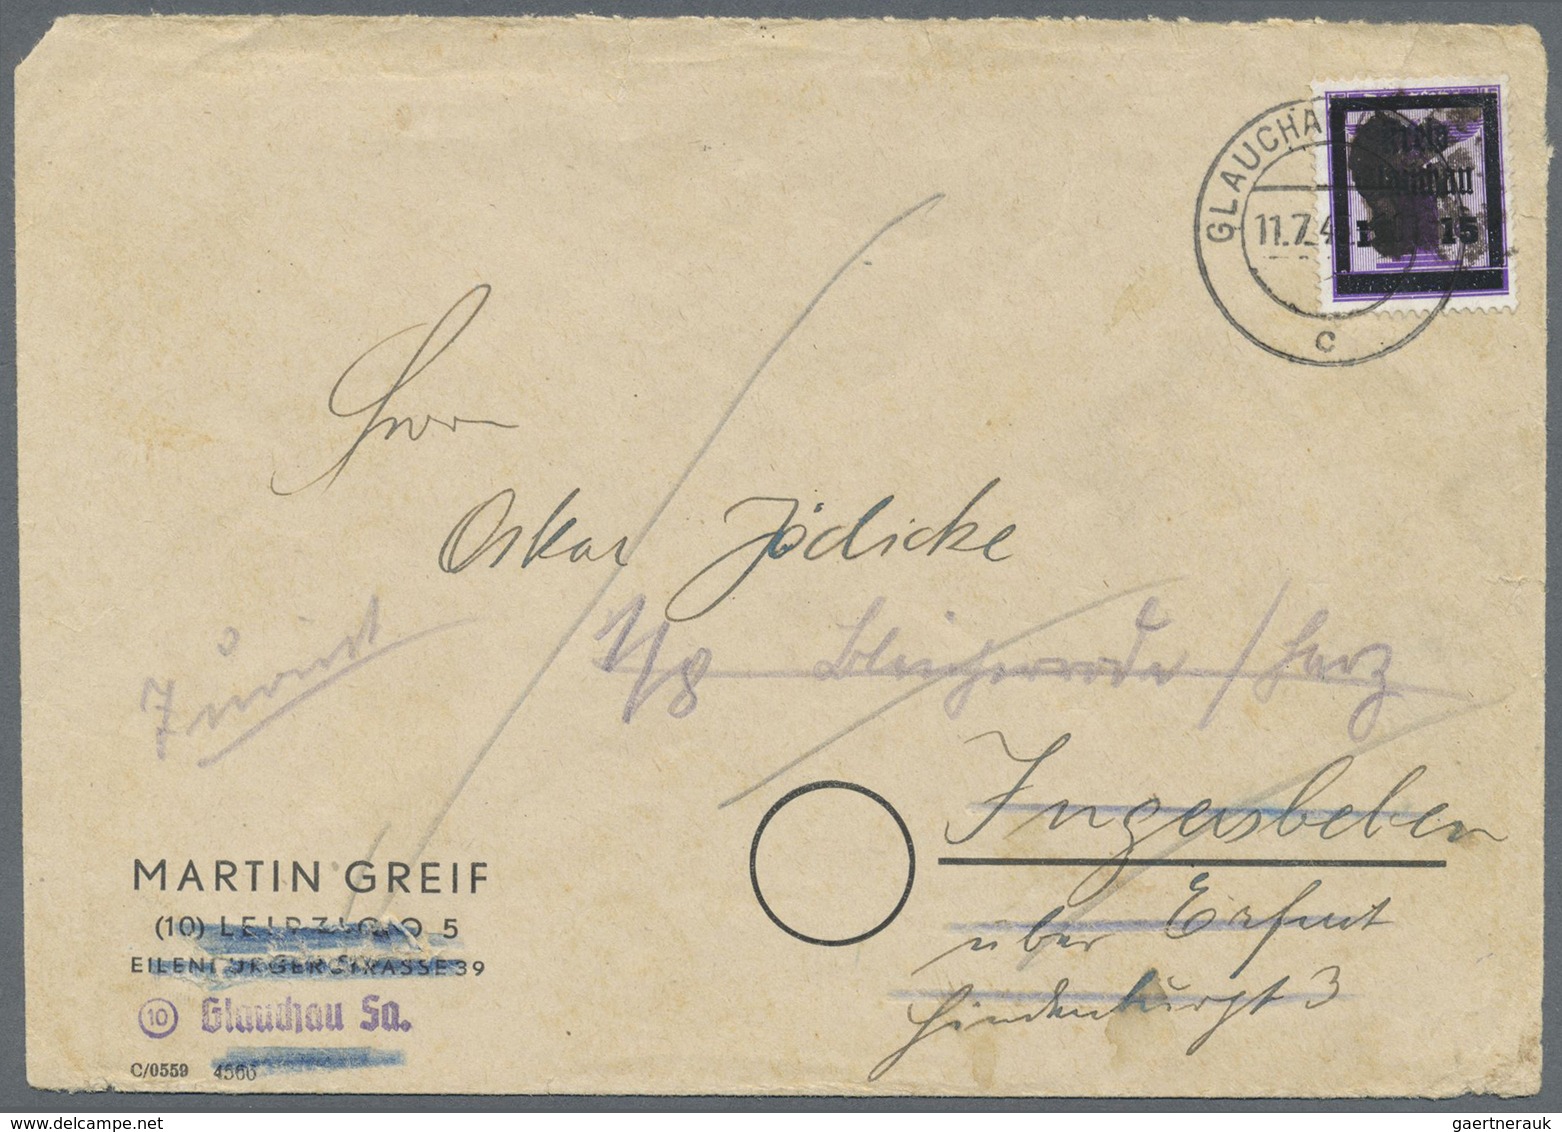 GLAUCHA
Kreis
Glauchau
15
11.7.4
c
Herrn
Oskar Jödicke
Zurück
Bleicherode / Harz
Ingersleben
über Erfurt
Hindenburgst 3
MARTIN GREIF
(10) LEIPZIG O 5
EILENBURGER STRASSE 39
(10) Glauchau Sa.
C/0559 4566
gaertnerauk